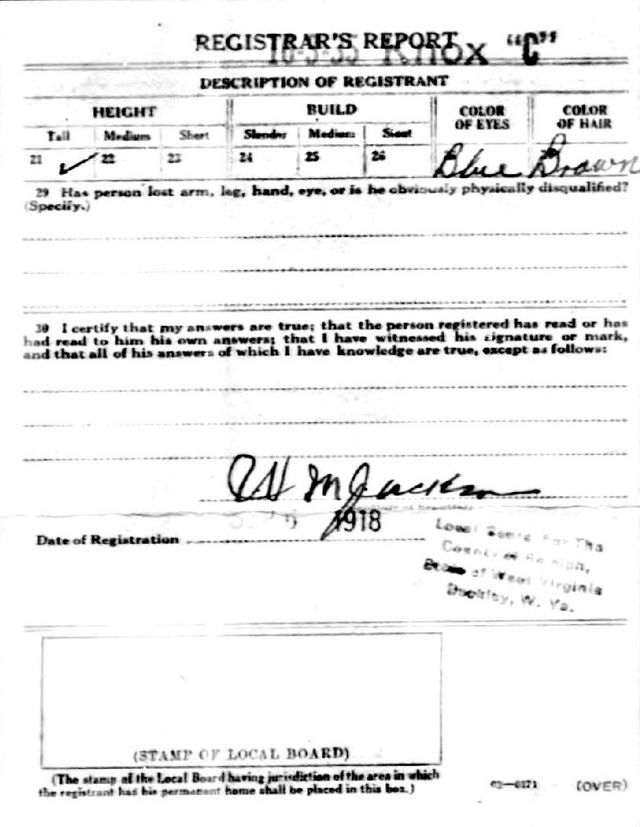 REGISTRAR'S REPORT
Knox "C"
DESCRIPTION OF REGISTRANT
HEIGHT BUILD COLOR OF EYES COLOR OF HAIR
Tall Medium Short Slender Medium Stout
21 ✓ 22 23 24 25 26 Blue Brown
29 Has person lost arm, leg, hand, eye, or is he obviously physically disqualified?
(Specify.)
30 I certify that my answers are true; that the person registered has read or has
had read to him his own answers; that I have witnessed his signature or mark,
and that all of his answers of which I have knowledge are true, except as follows:
M Jackson
Date of Registration 1918
Local For The
County of
State of West Virginia
W. Va.
(STAMP OF LOCAL BOARD)
(The stamp of the Local Board having jurisdiction of the area in which
the registrant has his permanent home shall be placed in this box.)
(OVER)